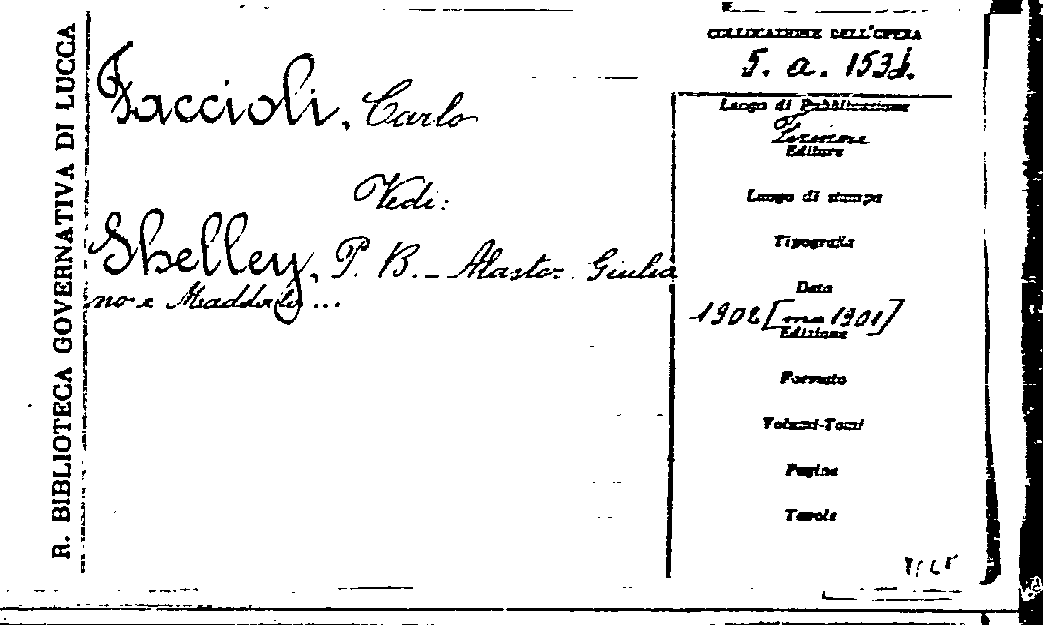 R. BIBLIOTECA GOVERNATIVA DI LUCCA
Faccioli, Carlo
Vedi:
Shelley, P. B. - Alastor. Giulia
no e Maddalo ...
COLLOCAZIONE DELL'OPERA
5. a. 153
Luogo di Pubblicazione
Firenze
Editore
Luogo di stampa
Tipografia
Data
1902 [ma 1901]
Edizione
Formato
Volumi-Tomi
Pagine
Tavole